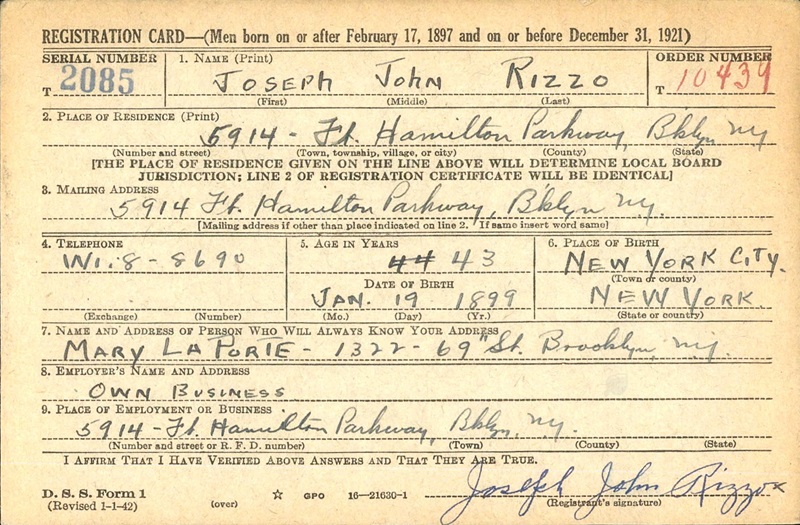 REGISTRATION CARD—(Men born on or after February 17, 1897 and on or before December 31, 1921)
SERIAL NUMBER 1. NAME (Print) ORDER NUMBER
T 2085 JOSEPH JOHN RIZZO T 10439
(First) (Middle) (Last)
2. PLACE OF RESIDENCE (Print)
5914 - Ft. Hamilton Parkway, Bklyn NY
(Number and street) (Town, township, village, or city) (County) (State)
[THE PLACE OF RESIDENCE GIVEN ON THE LINE ABOVE WILL DETERMINE LOCAL BOARD
JURISDICTION; LINE 2 OF REGISTRATION CERTIFICATE WILL BE IDENTICAL]
3. MAILING ADDRESS
5914 Ft. Hamilton Parkway, Bklyn NY.
[Mailing address if other than place indicated on line 2. If same insert word same]
4. TELEPHONE 5. AGE IN YEARS 6. PLACE OF BIRTH
WI. 8-8690 44 43 NEW YORK CITY.
DATE OF BIRTH (Town or county)
JAN. 19 1899 NEW YORK.
(Exchange) (Number) (Mo.) (Day) (Yr.) (State or country)
7. NAME AND ADDRESS OF PERSON WHO WILL ALWAYS KNOW YOUR ADDRESS
MARY LAPORTE - 1322 - 69" St. Brooklyn, NY.
8. EMPLOYER'S NAME AND ADDRESS
OWN BUSINESS
9. PLACE OF EMPLOYMENT OR BUSINESS
5914 - Ft. Hamilton Parkway, Bklyn, NY.
(Number and street or R. F. D. number) (Town) (County) (State)
I AFFIRM THAT I HAVE VERIFIED ABOVE ANSWERS AND THAT THEY ARE TRUE.
Joseph John Rizzo x
D. S. S. Form 1 (over) ☆ GPO 16—21630-1 (Registrant's signature)
(Revised 1-1-42)